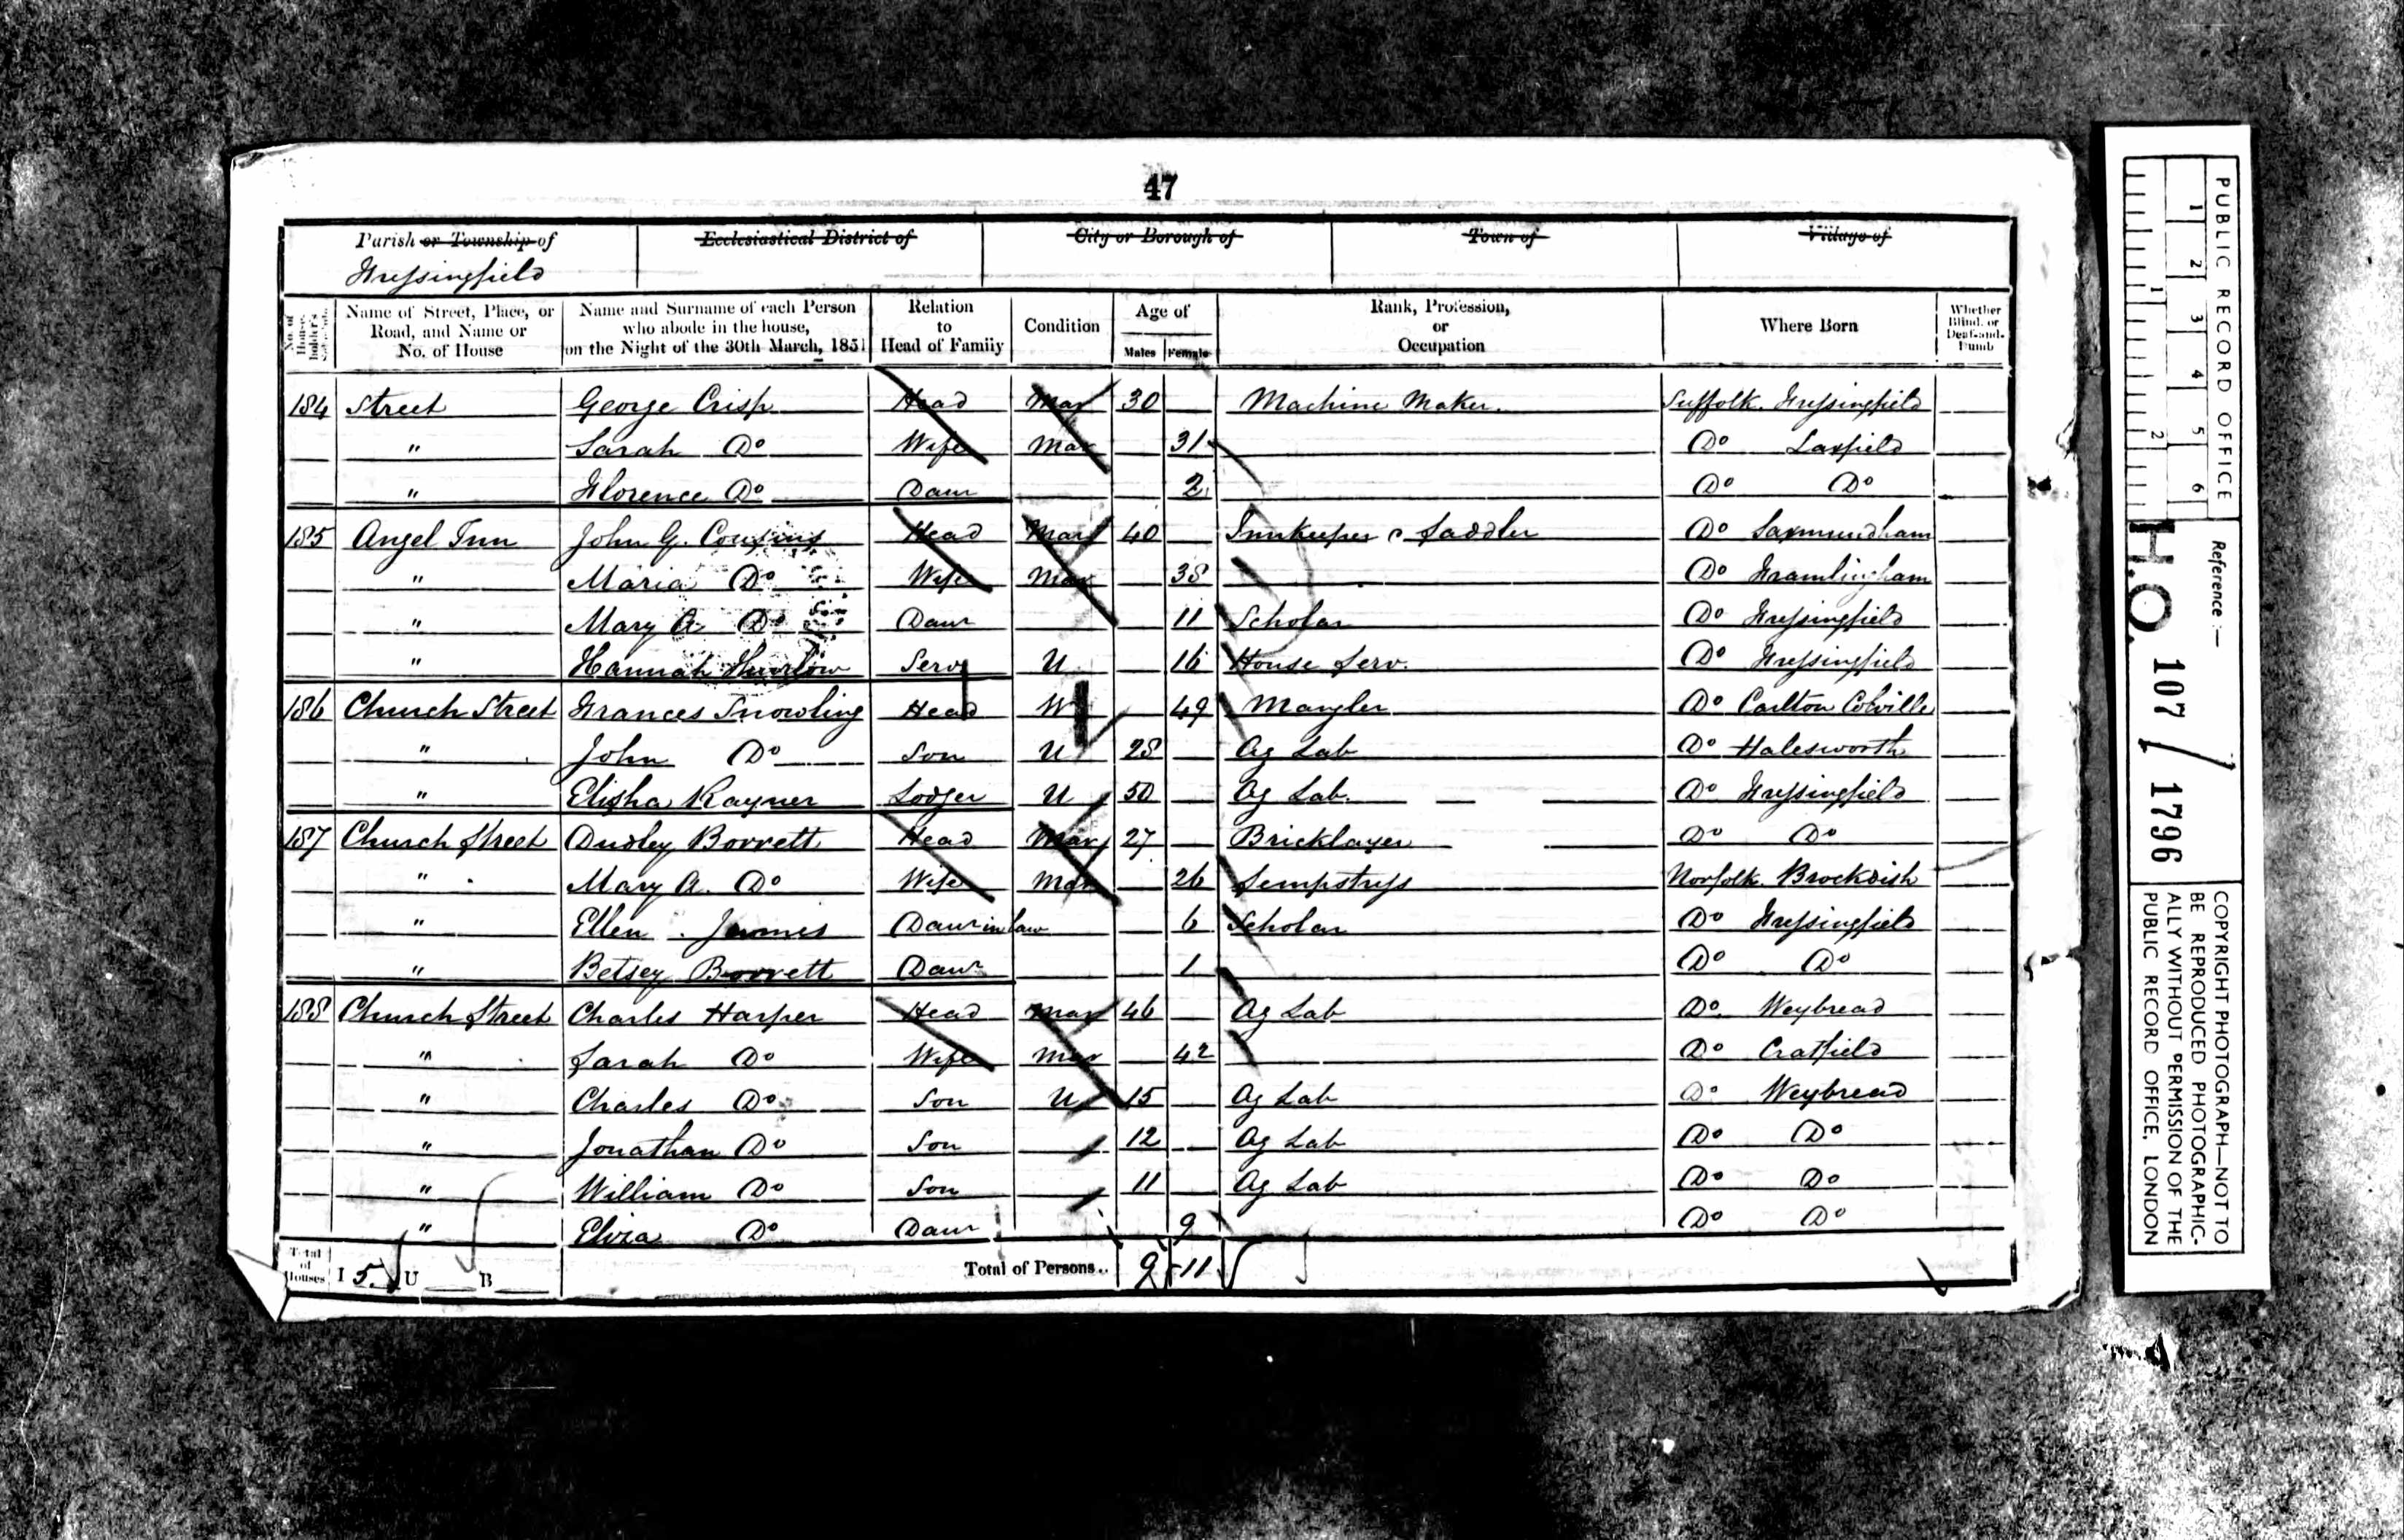 47
Parish or Township of Ecclesiastical District of City or Borough of Town of Village of
Fressingfield
No. of House-holder's Schedule Name of Street, Place, or Road, and Name or No. of House Name and Surname of each Person who abode in the house, on the Night of the 30th March, 1851 Relation to Head of Family Condition Age of Males Females Rank, Profession, or Occupation Where Born Whether Blind, or Deaf-and-Dumb
184 Street George Crisp Head Mar 30 Machine Maker. Suffolk. Fressingfield
" Sarah Do Wife Mar 31 Do Laxfield
" Florence Do Daur 2 Do Do
185 Angel Inn John G. Cousins Head Mar 40 Innkeeper & Saddler Do Saxmundham
" Maria Do Wife Mar 38 Do Framlingham
" Mary A Do Daur 11 Scholar Do Fressingfield
" Hannah Thurlow Serv U 16 House Serv. Do Fressingfield
186 Church Street Frances Snowling Head W 49 Mangler Do Carlton Colville
" John Do Son U 28 Ag Lab Do Halesworth
" Elisha Rayner Lodger U 50 Ag Lab. Do Fressingfield
187 Church Street Dudley Borrett Head Mar 27 Bricklayer Do Do
" Mary A. Do Wife Mar 26 Sempstress Norfolk. Brockdish
" Ellen James Daur in law 6 Scholar Do Fressingfield
" Betsey Borrett Daur 1 Do Do
188 Church Street Charles Harper Head Mar 46 Ag Lab Do. Weybread
" Sarah Do Wife Mar 42 Do Cratfield
" Charles Do Son U 15 Ag Lab Do Weybread
" Jonathan Do Son 12 Ag Lab Do Do
" William Do Son 11 Ag Lab Do Do
" Eliza Do Daur 9 Do Do
Total of Houses I 5 U B Total of Persons.. 9 11
PUBLIC RECORD OFFICE
1 2 3 4 5 6
1 2
Reference:—
H.O. 107 / 1796
COPYRIGHT PHOTOGRAPH—NOT TO
BE REPRODUCED PHOTOGRAPHIC-
ALLY WITHOUT PERMISSION OF THE
PUBLIC RECORD OFFICE, LONDON